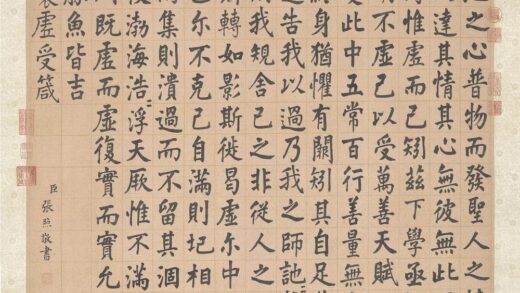 之心普物而發聖人之
達其情其心無彼無此
虛而已矧茲下學亟
不虛己以受萬善天賦
此中五常百行善量無
身猶懼有闕矧其自足
告我以過乃我之師訑
我規舍己之非從人之
轉如影斯徙曷虛尔中
尔不克己自滿則圮相
集則潰過而不留其涸
渤海浩浮天厥惟不滿
既虛而虛復實而實允
豚魚皆吉
虛受箴
臣張照敬書